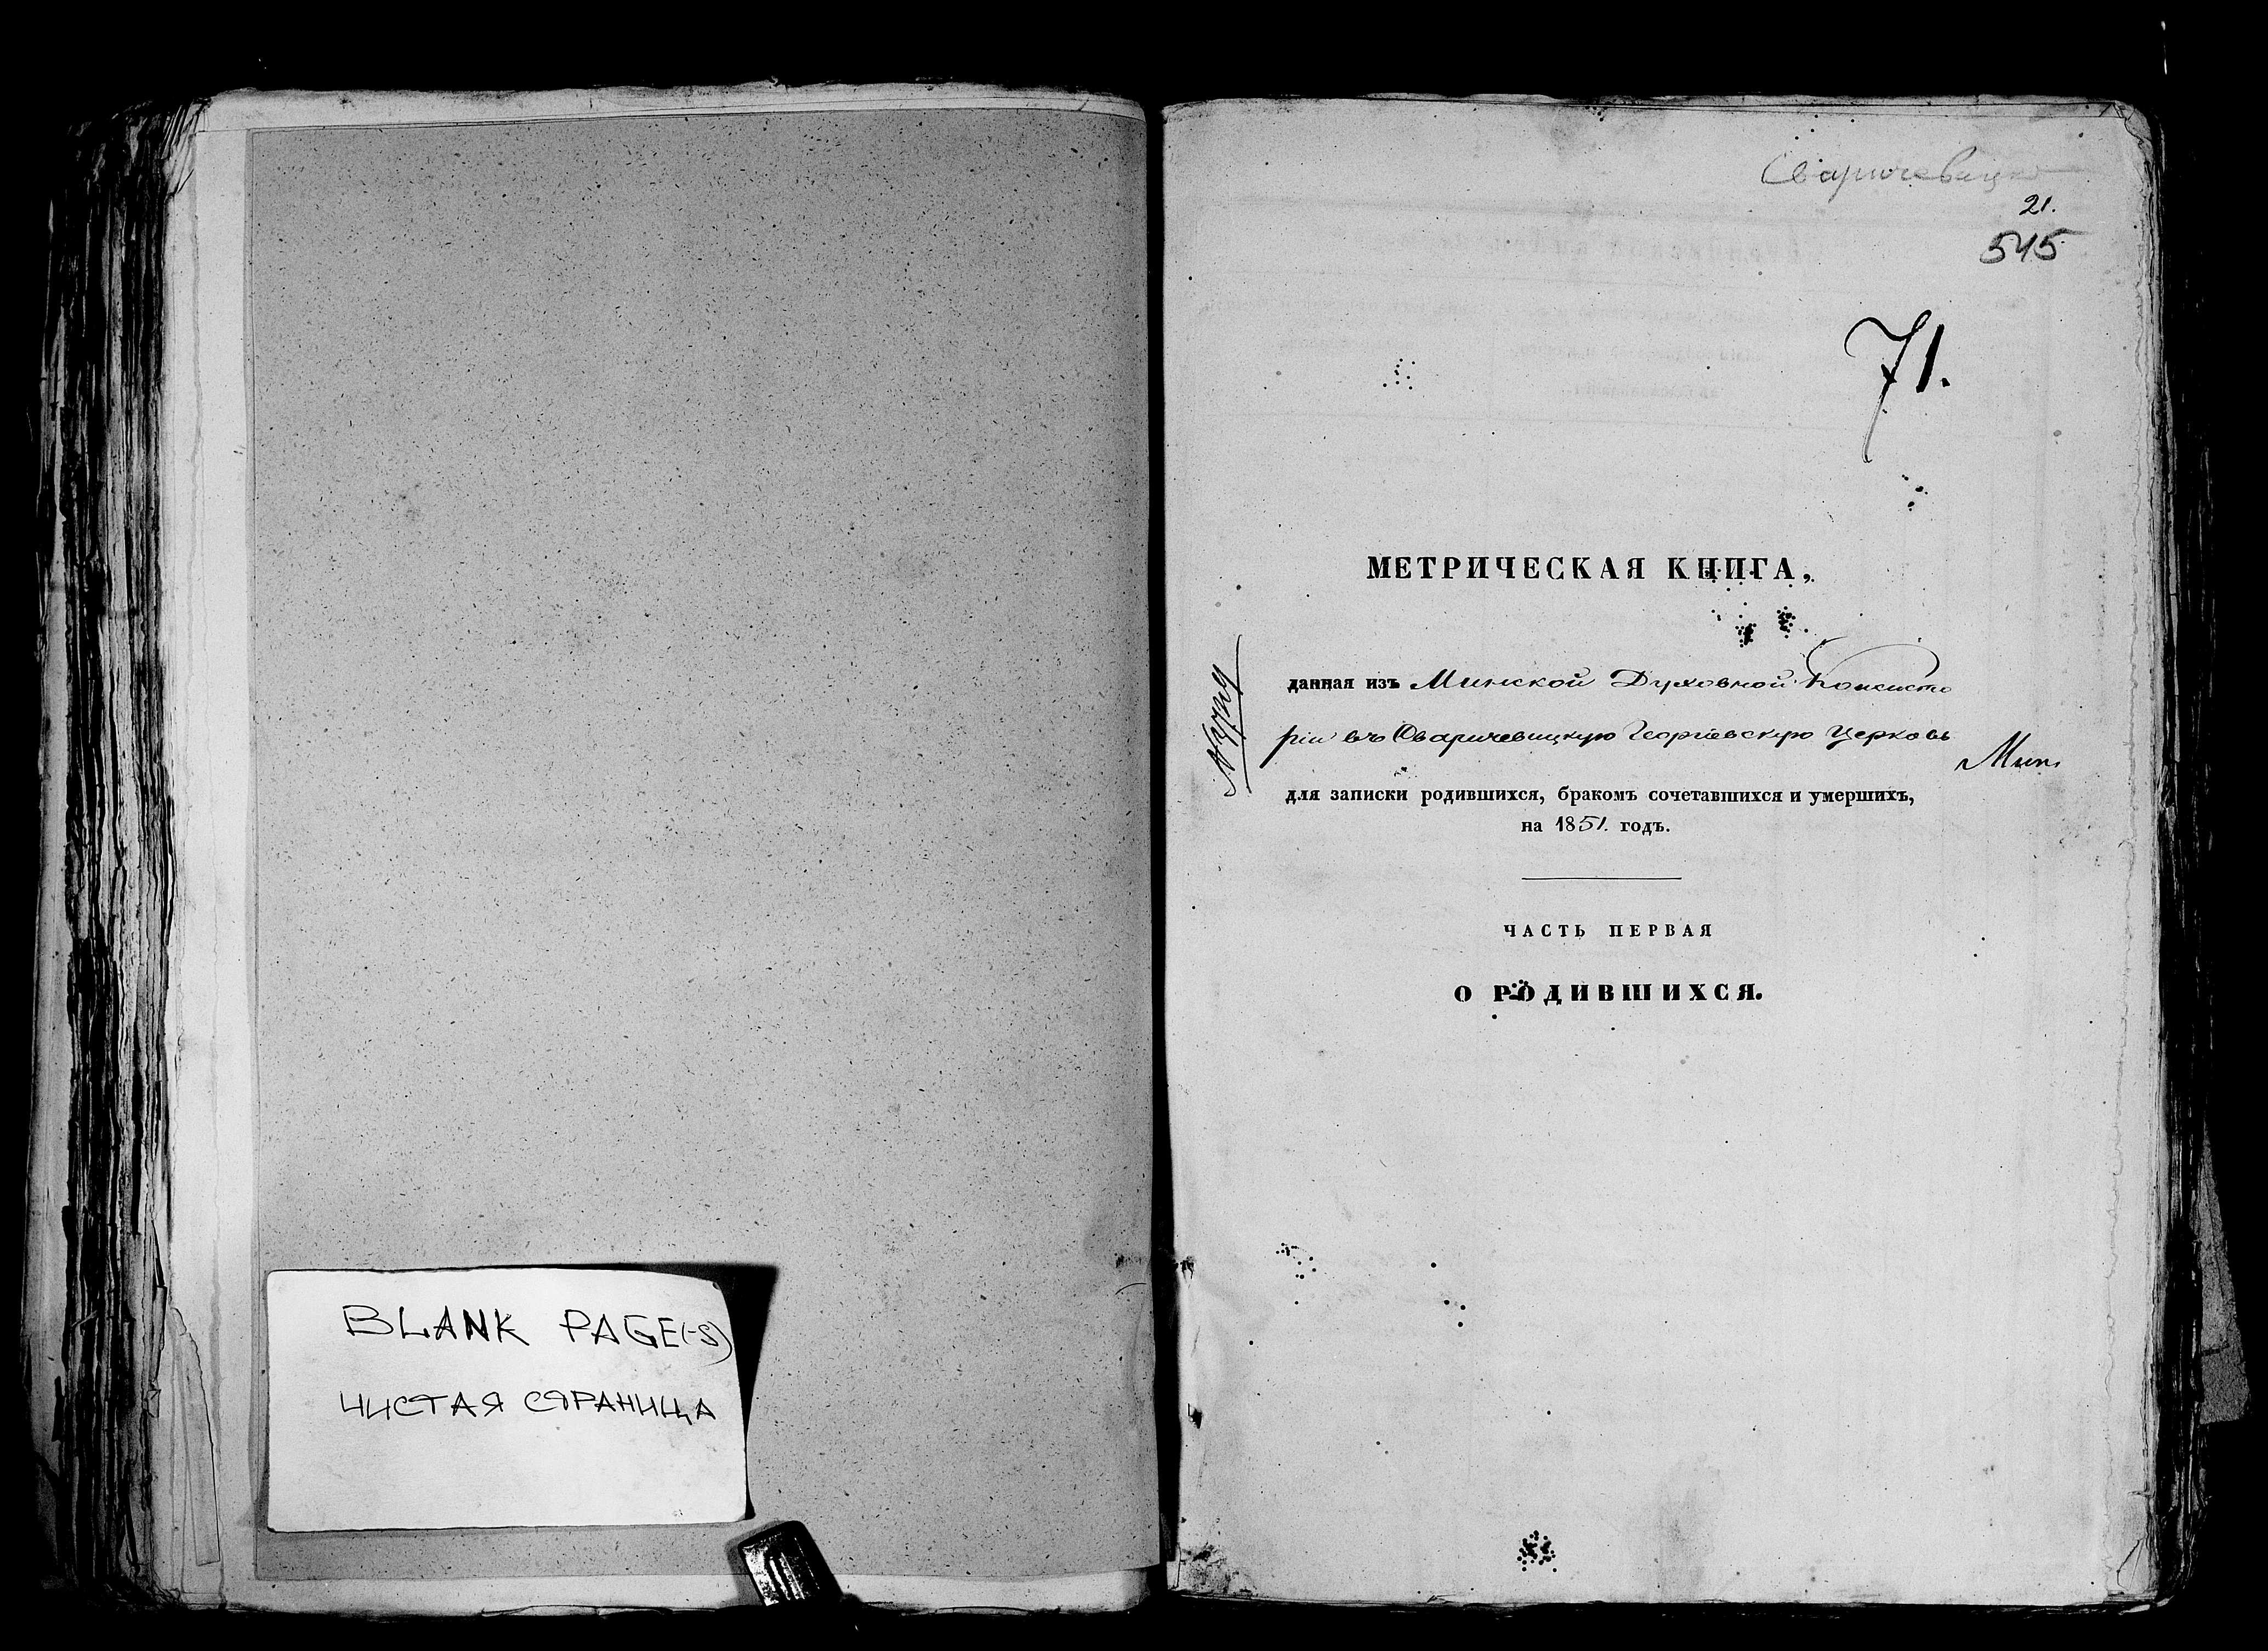 BLANK PAGE(-S)
ЧИСТАЯ СТРАНИЦА
Сваричевицко
21.
545
71.
МЕТРИЧЕСКАЯ КНИГА,
данная изъ Минской Духовной Консисто
ріи въ Сваричевицкую Георгіевскую Церковь
для записки родившихся, бракомъ сочетавшихся и умершихъ,
на 1851. годъ.
ЧАСТЬ ПЕРВАЯ
О РОДИВШИХСЯ.